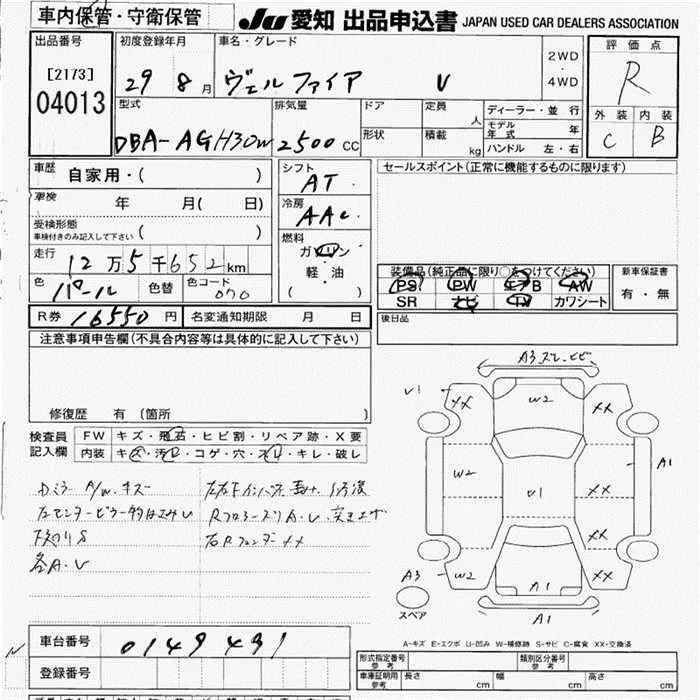 車内保管・守衛保管
JU 愛知 出品申込書 JAPAN USED CAR DEALERS ASSOCIATION
出品番号 初度登録年月 車名・グレード 2WD ・ 4WD 評価点
[2173] 29 8月 ヴェルファイア V R
04013 型式 排気量 ドア 定員 人 ディーラー・並行 外装 内装
モデル年式 年
DBA-AGH30W 2500 CC 形状 積載 kg ハンドル 左・右 C B
車歴 自家用・( ) シフト AT セールスポイント(正常に機能するものに限ります)
車検 年 月( 日) 冷房 AAC
受検形態 車検付きのみ記入して下さい ( ) 燃料
走行 12万5千652km ガソリン 装備品(純正品に限り○をつけてください) 新車保証書
色 パール 色替 色コード 070 軽・油 PS PW エアB AW 有・無
( ) SR ナビ TV カワシート
R券 16550円 名変通知期限 月 日 後日品
注意事項申告欄(不具合内容等は具体的に記入して下さい)
修復歴 有 (箇所 )
検査員 FW キズ・飛石・ヒビ割・リペア跡・X要
記入欄 内装 キズ・汚レ・コゲ・穴・スレ・キレ・破レ
Dミラー A/W.キズ
各A.V
A3スレ・ヒビ
V1 XX W2 XX
W2 V1 XX A1
XX
A3 W2 A1 XX
スペア A1
A-キズ E-エクボ U-凹み W-補修跡 S-サビ C-腐食 XX-交換済
車台番号 0149491
登録番号
形式指定番号 参考 類別区分番号 参考
車庫証明用 参考 長さ cm 幅 cm 高さ cm